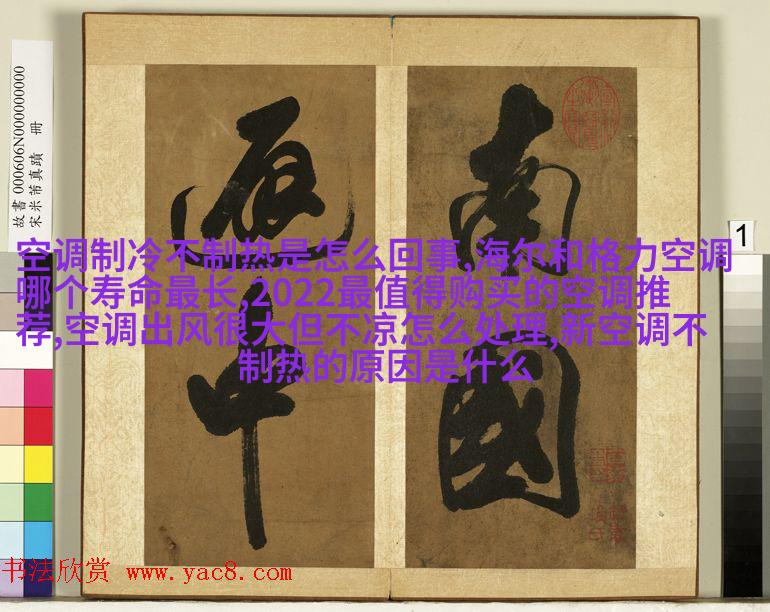 故書 000606N000000000
宋米芾真蹟 冊
1
南國
中
空调制冷不制热是怎么回事,海尔和格力空调
哪个寿命最长,2022最值得购买的空调推
荐,空调出风很大但不凉怎么处理,新空调不
制热的原因是什么
书法欣赏 www.yac8.com